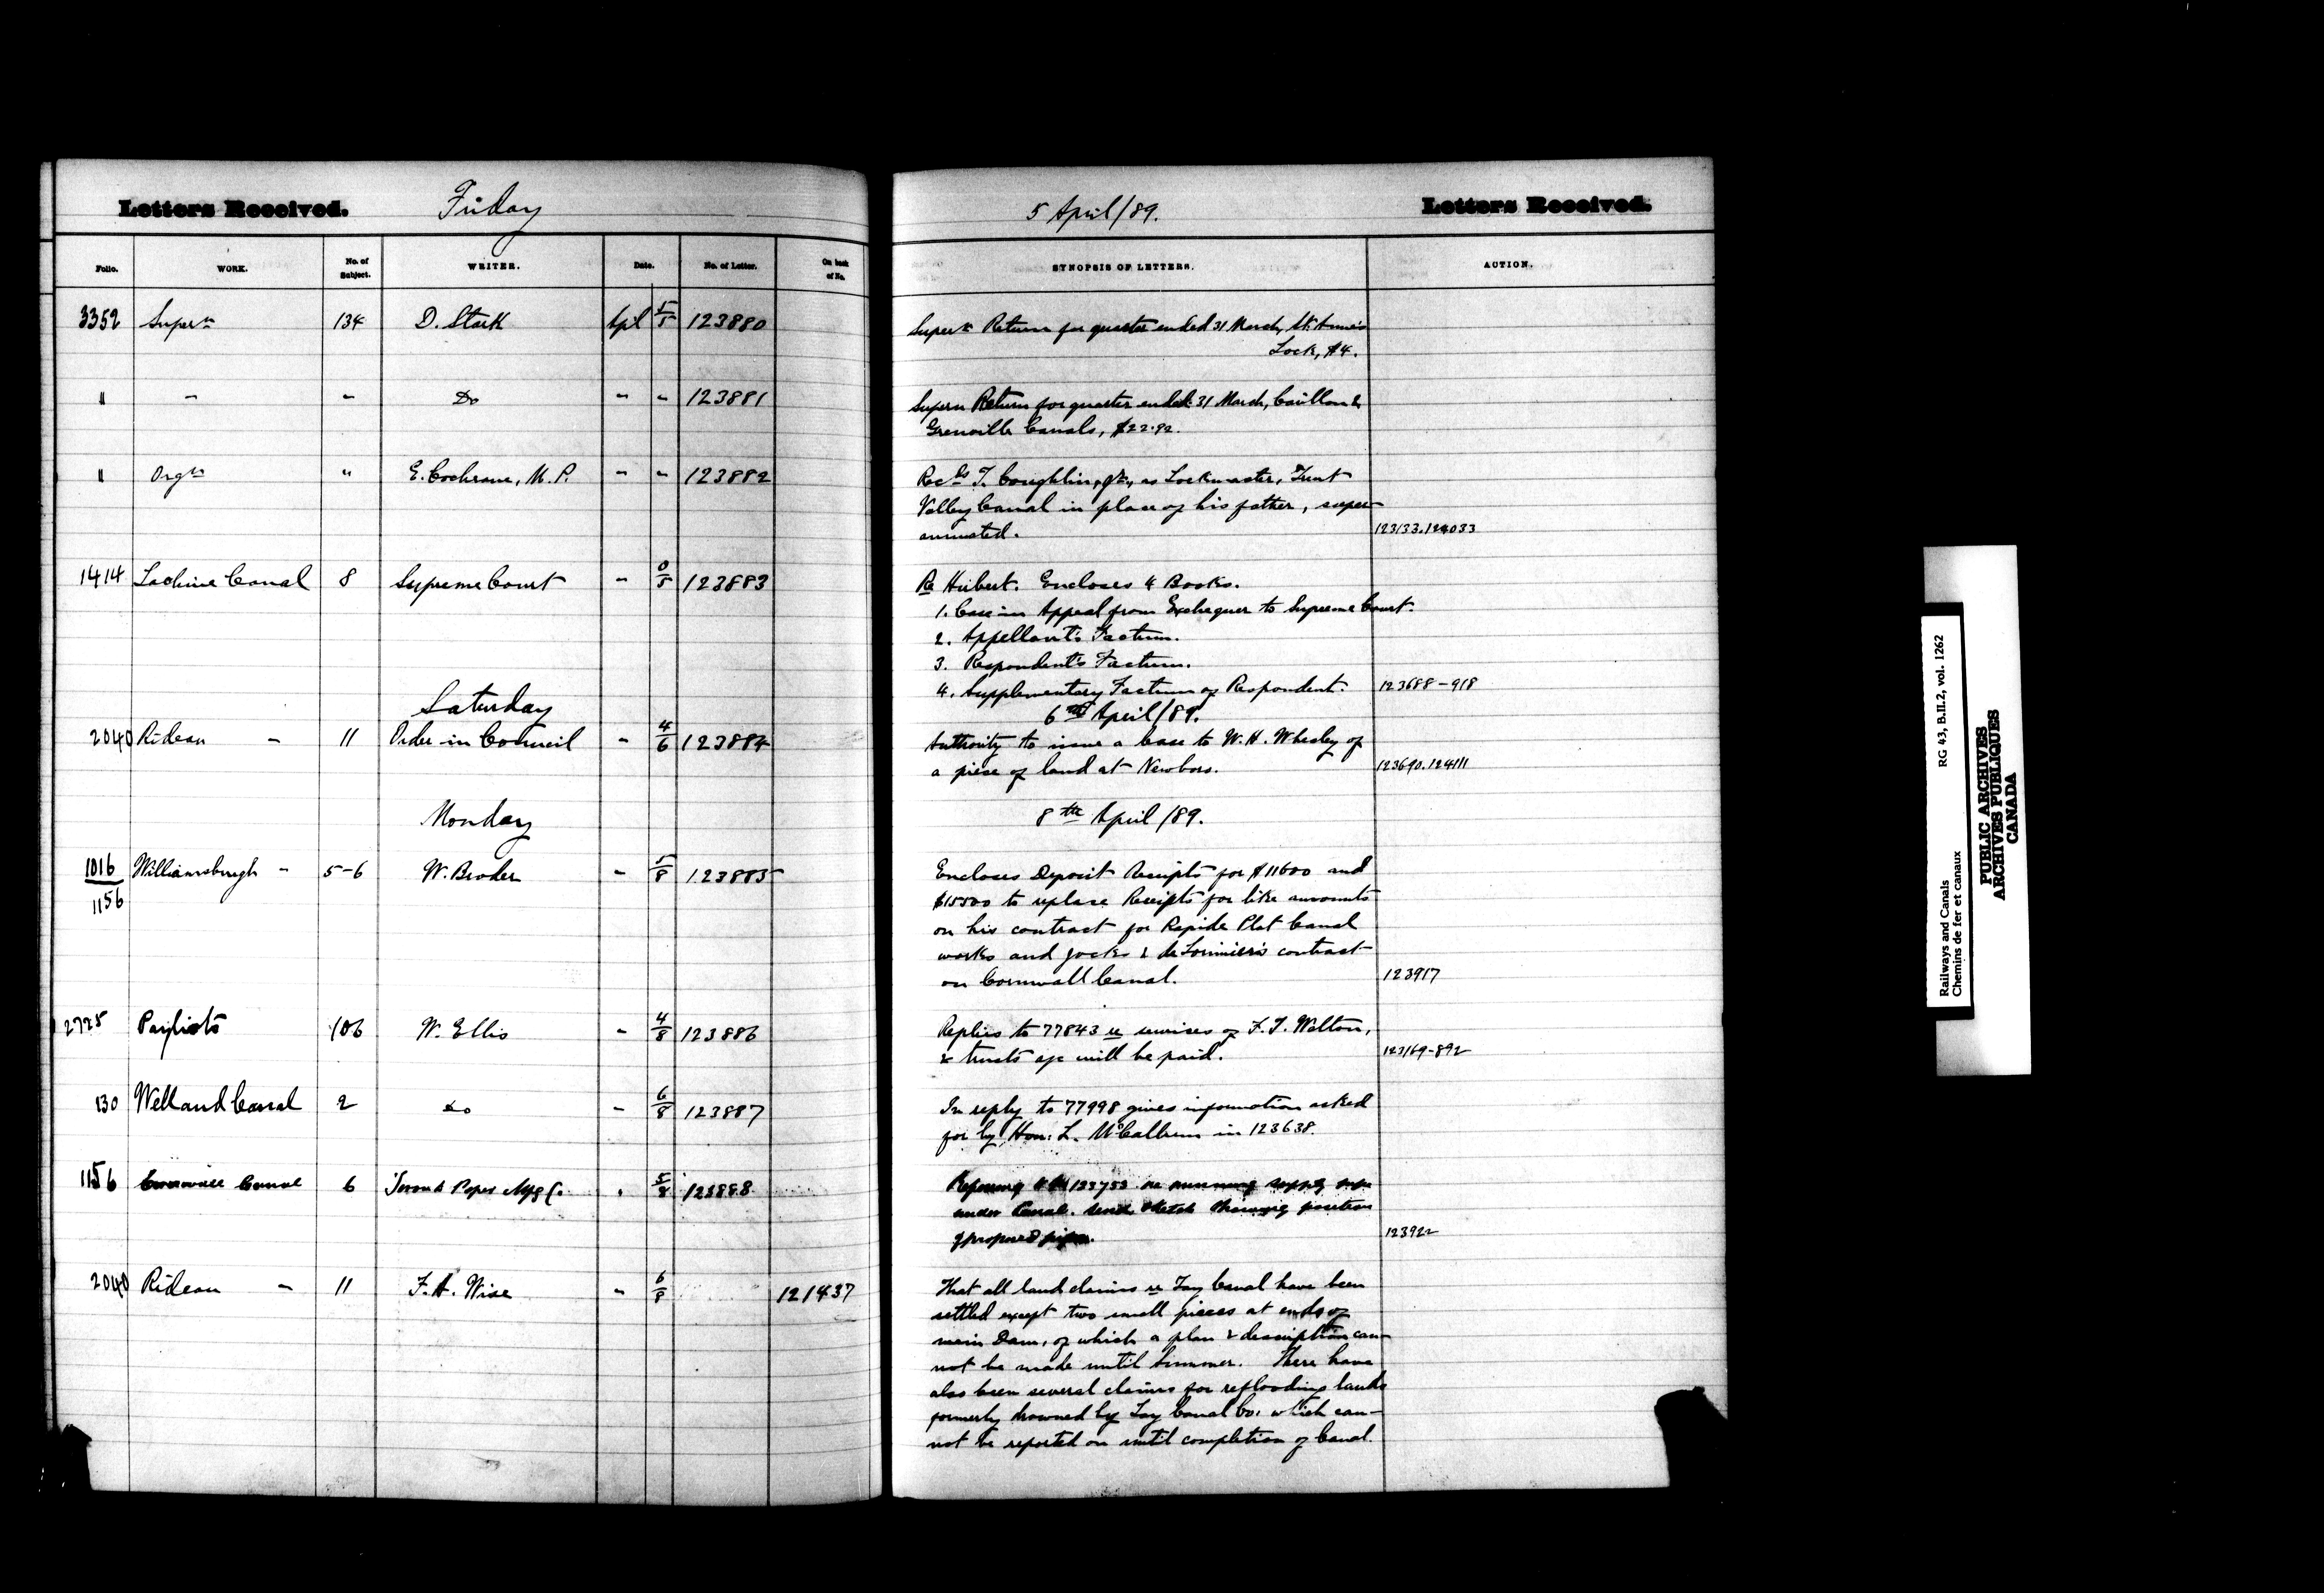 Letters Received. Friday
5 April/89. Letters Received.
Folio. WORK. No. of Subject. WRITER. Date. No. of Letter. On back of No. SYNOPSIS OF LETTERS. ACTION.
3352 Superⁿ 134 D. Stark Apl 5/5 123880 Superⁿ Return for quarter ended 31 March, St. Anne's
Lock, $4.
" " " Do " " 123881 Supern Return for quarter ended 31 March, Carillon &
Grenville Canals, $22.92.
" Orgⁿ " E. Cochrane, M.P. " " 123882 Recᵈˢ T. Coughlin, jr., as Lockmaster, Trent
Valley Canal in place of his father, super-
annuated. 123133.124033
1414 Lachine Canal 8 Supreme Court " 0/5 123883 Re Hubert. Encloses 4 Books.
1. Case in Appeal from Exchequer to Supreme Court.
2. Appellant's Factum.
3. Respondent's Factum.
4. Supplementary Factum of Respondent. 123688-918
Saturday 6th April/89.
2040 Rideau " 11 Order in Council " 4/6 123884 Authority to issue a lease to W. H. Whaley of
a piece of land at Newboro. 123690.124111
Monday 8th April/89.
1016/1156 Williamsburgh " 5-6 W. Broder " 5/8 123885 Encloses Deposit Receipts for $11600 and
$15500 to replace Receipts for like amounts
on his contract for Rapide Plat Canal
works and Jocks & de Lorimier's contract
on Cornwall Canal. 123917
2725 Paylists 106 W. Ellis " 4/8 123886 Replies to 77843 re services of F. T. Walton,
& trusts a/c will be paid. 123169-892
130 Welland Canal 2 do " 6/8 123887 In reply to 77998 gives information asked
for by Hon: L. McCallum in 123638.
1156 Cornwall Canal 6 Toronto Paper Mfg Co. " 5/8 123888 Referring to 123753 re running supply pipe
under Canal. Send sketch showing position
of proposed pipe. 123922
2040 Rideau " 11 F. A. Wise " 6/8 121437 That all land claims re Tay Canal have been
settled except two small pieces at ends of
main Dam, of which a plan & description can-
not be made until Summer. There have
also been several claims for reflooding lands
formerly drowned by Tay Canal Co. which can-
not be reported on until completion of Canal.
Railways and Canals RG 43, B.II.2, vol. 1262
Chemins de fer et canaux
PUBLIC ARCHIVES
ARCHIVES PUBLIQUES
CANADA